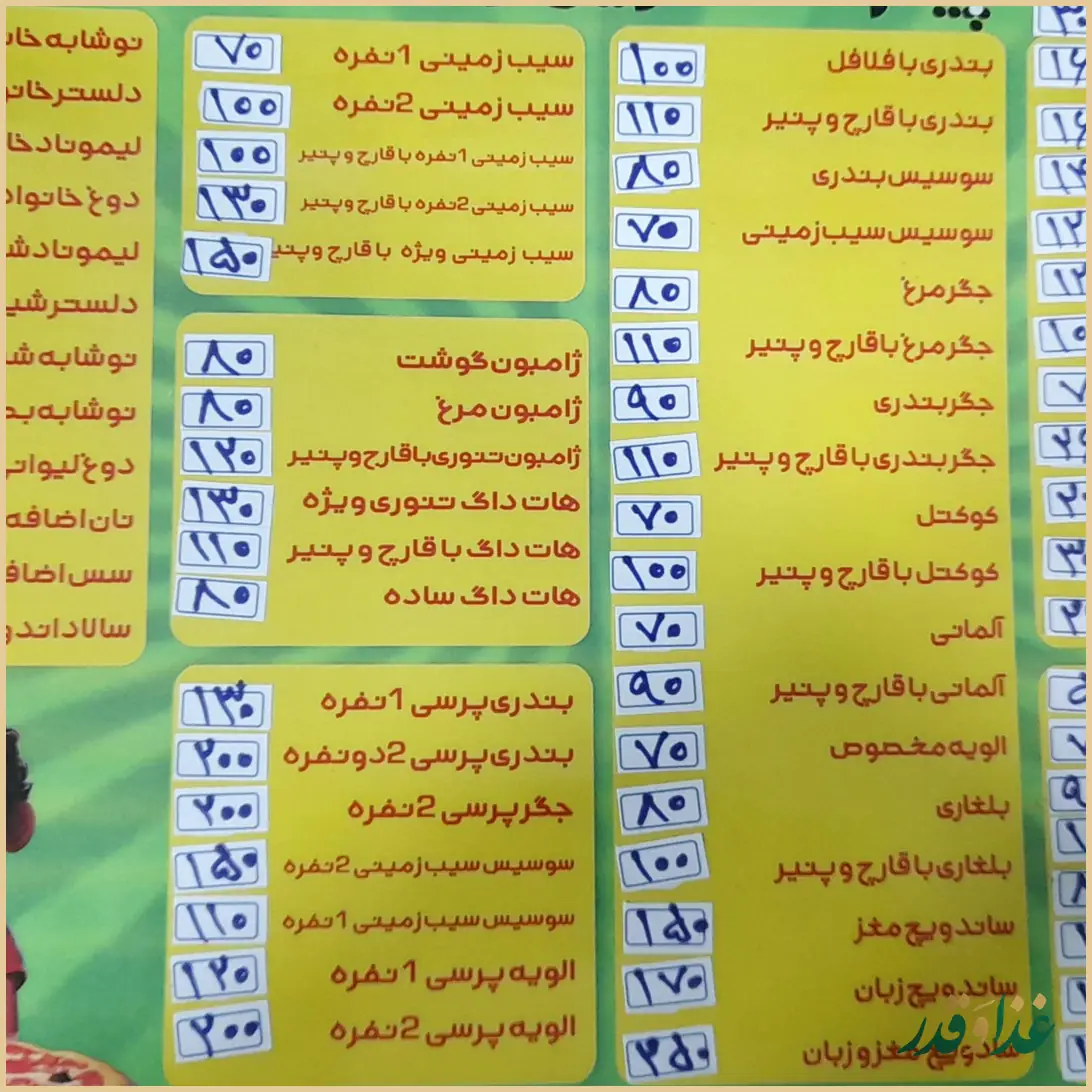 بندری با فلافل ۱۰۰
بندری با قارچ و پنیر ۱۱۰
سوسیس بندری ۸۰
سوسیس سیب زمینی ۷۰
جگر مرغ ۸۰
جگر مرغ با قارچ و پنیر ۱۱۰
جگر بندری ۹۰
جگر بندری با قارچ و پنیر ۱۱۰
کوکتل ۷۰
کوکتل با قارچ و پنیر ۱۰۰
آلمانی ۷۰
آلمانی با قارچ و پنیر ۹۰
الویه مخصوص ۷۰
بلغاری ۸۰
بلغاری با قارچ و پنیر ۱۰۰
ساندویچ مغز ۱۵۰
ساندویچ زبان ۱۷۰
ساندویچ مغز و زبان ۲۵۰
سیب زمینی 1 نفره ۷۰
سیب زمینی 2 نفره ۱۰۰
سیب زمینی 1 نفره با قارچ و پنیر ۱۰۰
سیب زمینی 2 نفره با قارچ و پنیر ۱۳۰
سیب زمینی ویژه با قارچ و پنیر ۱۵۰
ژامبون گوشت ۸۰
ژامبون مرغ ۸۰
ژامبون تنوری با قارچ و پنیر ۱۲۰
هات داگ تنوری ویژه ۱۳۰
هات داگ با قارچ و پنیر ۱۱۰
هات داگ ساده ۸۰
بندری پرسی 1 نفره ۱۳۰
بندری پرسی 2 دو نفره ۲۰۰
جگر پرسی 2 نفره ۲۰۰
سوسیس سیب زمینی 2 نفره ۱۵۰
سوسیس سیب زمینی 1 نفره ۱۱۰
الویه پرسی 1 نفره ۱۲۰
الویه پرسی 2 نفره ۲۰۰
نوشابه
دلستر
لیموناد
دوغ
لیموناد
دلستر
نوشابه
نوشابه
دوغ
نان اضافه
سس
سالاد
غذا و قدر